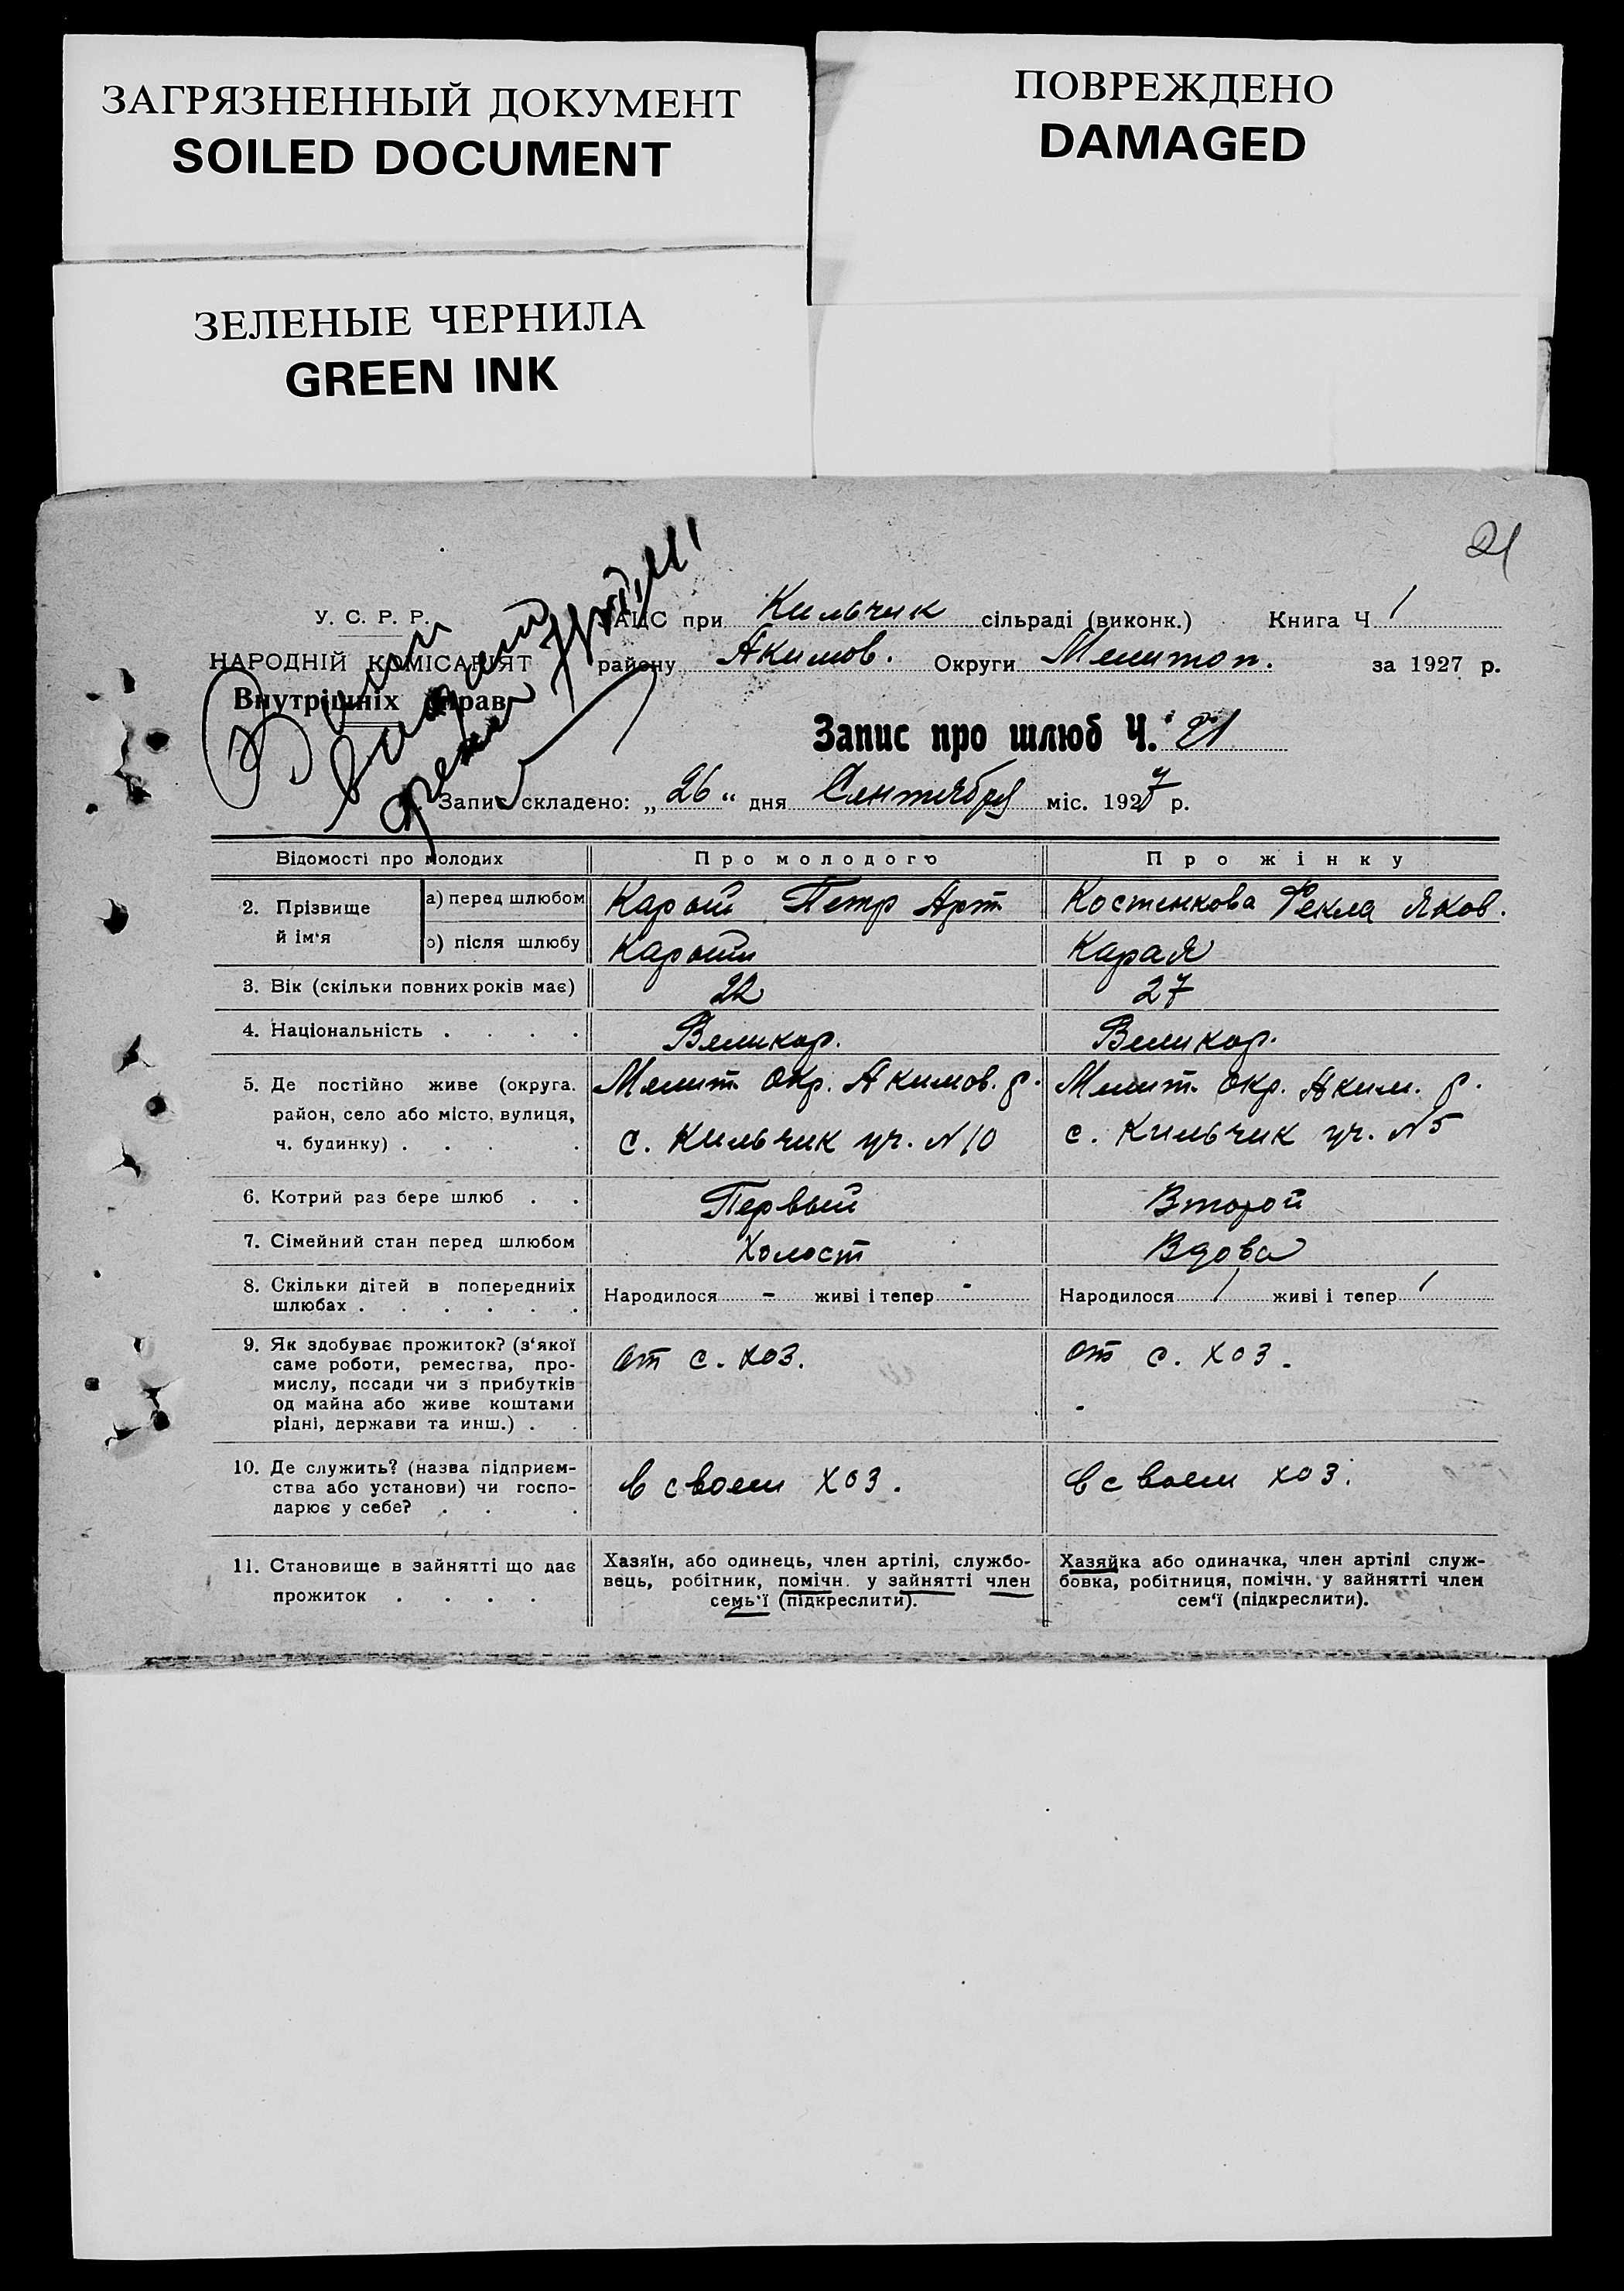 ЗАГРЯЗНЕННЫЙ ДОКУМЕНТ
SOILED DOCUMENT
ПОВРЕЖДЕНО
DAMAGED
ЗЕЛЕНЫЕ ЧЕРНИЛА
GREEN INK
21
У. С. Р. Р.
НАРОДНІЙ КОМІСАРІЯТ
Внутрішніх справ
ЗАЦС при Кильчик сільраді (виконк.) Книга Ч 1
району Акимов. Округи Мелитоп. за 1927 р.
Запис про шлюб Ч. 21
Запис складено: „26“ дня Сентября міс. 1927 р.
Відомості про молодих Про молодого Про жінку
2. Прізвище й ім'я
а) перед шлюбом Карый Петр Арт. Костенкова Фекла Яков.
б) після шлюбу Карый Карая
3. Вік (скільки повних років має) 22 27
4. Національність . . . . Великор. Великор.
5. Де постійно живе (округа, Мелит. Окр. Акимов. р. Мелит. Окр. Аким. р.
район, село або місто, вулиця,
ч. будинку) . . . . с. Кильчик уч. N 10 с. Кильчик уч. N 5
6. Котрий раз бере шлюб . . Первый Второй
7. Сімейний стан перед шлюбом Холост Вдова
8. Скільки дітей в попередниіх
шлюбах . . . . . . Народилося - живі і тепер - Народилося 1 живі і тепер 1
9. Як здобуває прожиток? (з'якої
саме роботи, ремества, про- от с. хоз. от с. хоз.
мислу, посади чи з прибутків
од майна або живе коштами
рідні, держави та инш.) . .
10. Де служить? (назва підприєм-
ства або установи) чи госпо- в своем хоз. в своем хоз.
дарює у себе? . . .
11. Становище в зайнятті що дає
прожиток . . . .
Хазяїн, або одинець, член артілі, службо-
вець, робітник, помічн. у зайнятті член
семь'ї (підкреслити).
Хазяйка або одиначка, член артілі служ-
бовка, робітниця, помічн. у зайнятті член
сем'ї (підкреслити).